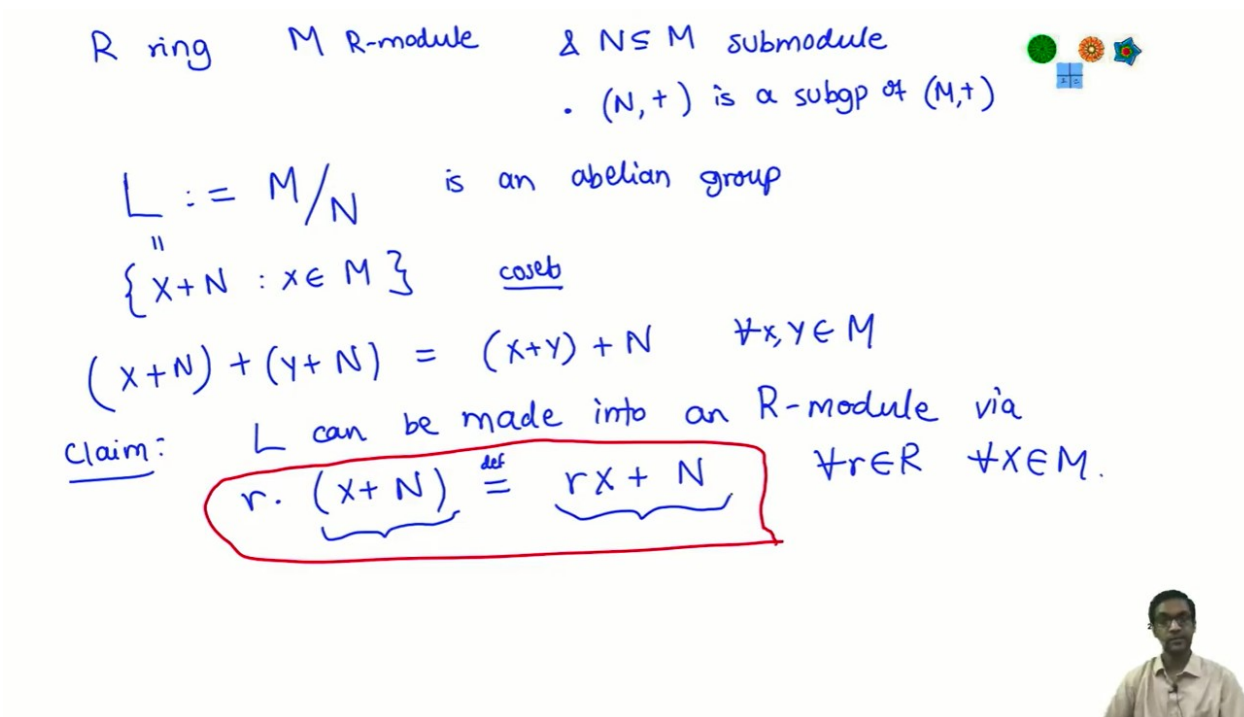 R ring M R-module & N ⊆ M submodule
. (N, +) is a subgp of (M,+)
L := M/N is an abelian group
=
{ x+N : x ∈ M } cosets
(x+N) + (y+N) = (x+y) + N ∀x,y ∈ M
Claim: L can be made into an R-module via
r. (x+N) def= rx + N ∀r∈R ∀x∈M.